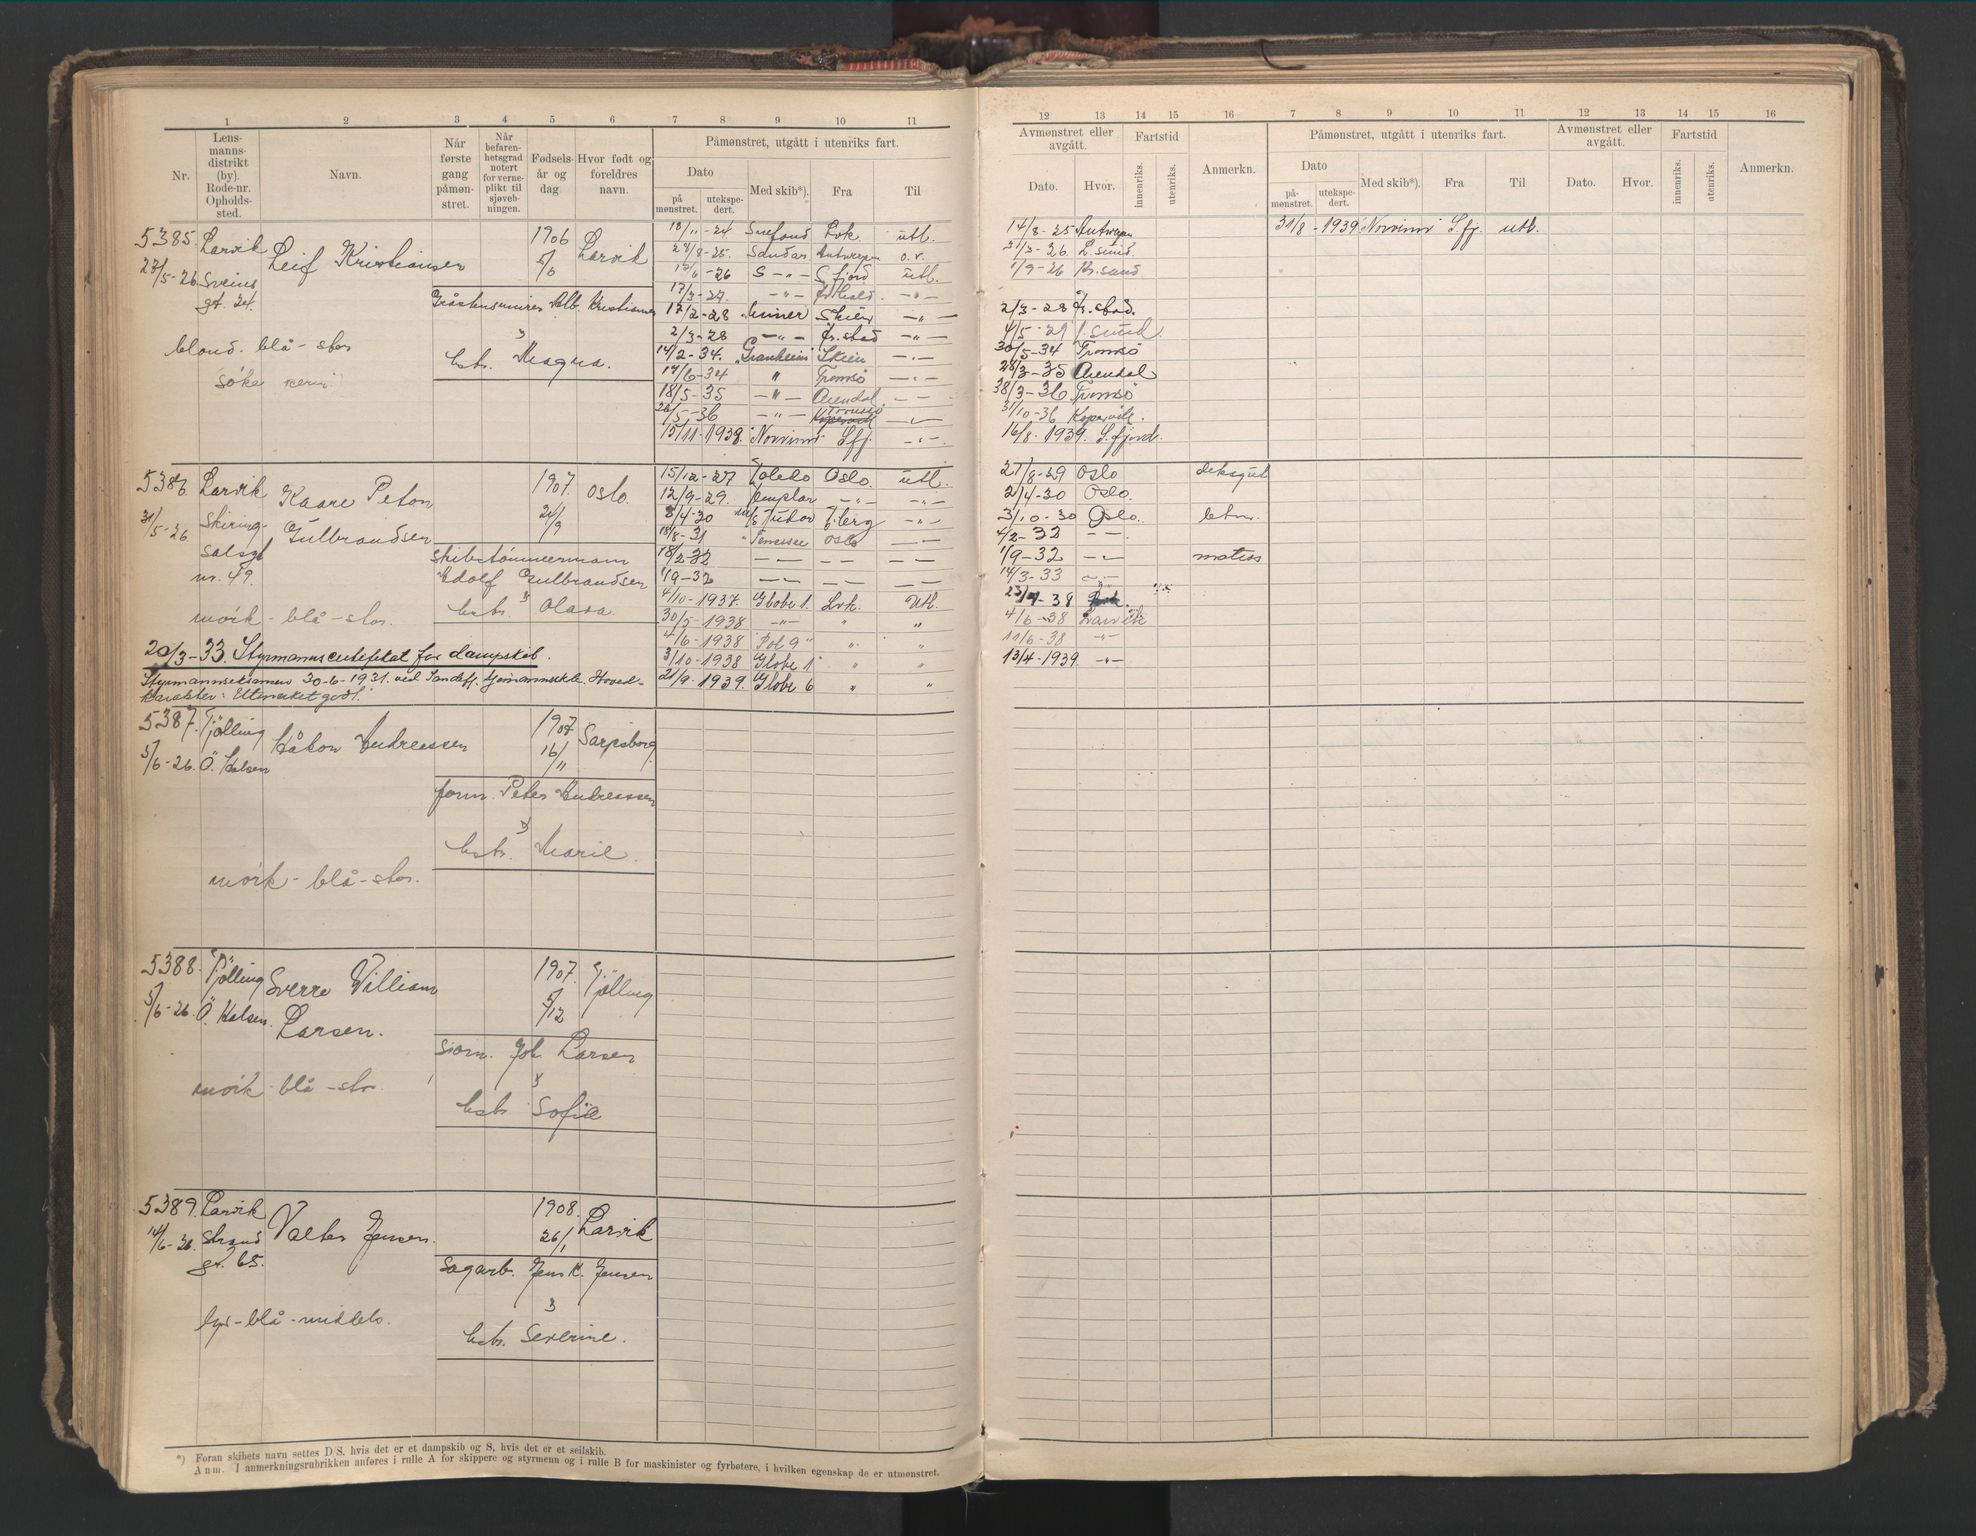 1 2 3 4 5 6 7 8 9 10 11
Nr. Lensmannsdistrikt (by). Rode-nr. Opholdssted. Navn. Når første gang påmønstret. Når befarenhetsgrad notert for verneplikt til sjøvebningen. Fødselsår og dag Hvor født og foreldres navn.
Påmønstret, utgått i utenriks fart.
Dato Med skib*). Fra Til
på mønstret. utekspedert.
5385. Larvik Leif Kristiansen 1906 5/6 Larvik
27/5-26 Sveins gt. 24
Alb. Kristiansen
&
hstr. Magna.
blond. blå - stor
18/11-24 Lvk. utl.
28/8-25. Sandar Antwerpen o.v.
-26 S -"- S.fjord utl.
17/3-27. -"- -"-
17/2-28 Skien -"-
2/3-28 -"- Fr.stad -"-
14/2-34. Granheim Skien -"-
14/6-34 " Tromsø -"-
18/5-35 -"- Arendal -"-
26/5-36 -"- Tromsø Kopervik -"-
15/11-1938. Norvinn Sfj. -"-
5386. Larvik Kaare Peton Gulbrandsen 1907. Oslo.
31/5-26 Skiringssalsgt nr. 49.
skibstømmermann
Adolf Gulbrandsen
&
hstr. Olava.
mørk - blå - stor.
20/3-33. Styrmannscertifikat for dampskib.
Styrmannseksamen 30-6-1931 ved Sandefj. Sjømannsskole. Hovedkarakter: Utmerket godt.
15/12-27 Toledo Oslo. utl.
12/9-29. Templar -"- -"-
8/4-30 M/S Tudor T.berg -"-
18/8-31 Tennessee Oslo -"-
18/2-32 -"- -"- -"-
1/9-32 -"- -"- -"-
4/10-1937. Globe 1. Lvk. Utl.
30/5-1938 -"- " "
4/6-1938 "Pol 9" " "
3/10-1938 Globe 1 " "
21/9-1939. Globe 6 " "
5387. Tjølling Håkon Andreassen 1907 16/11 Sarpsborg.
5/6-26. Ö. Halsen
form. Peter Andreassen
&
hstr. Marie.
mørk - blå - stor.
5388. Tjølling Sverre William Larsen. 1907. 5/12 Tjølling
5/6-26 Ö. Halsen.
sjøm. Joh. Larsen
&
hstr. Sofie
mørk - blå - stor.
5389. Larvik Valter Jensen. 1908. 26/1 Larvik
14/6-26. Strand gt. 65.
sagarb. Jens K. Jensen
&
hstr. Severine.
lys - blå - middels.
*) Foran skibets navn settes D/S, hvis det er et dampskib og S, hvis det er et seilskib.
Anm. I anmerkningsrubrikken anføres i rulle A for skippere og styrmenn og i rulle B for maskinister og fyrbøtere, i hvilken egenskap de er utmønstret.
12 13 14 15 16 7 8 9 10 11 12 13 14 15 16
Avmønstret eller avgått. Fartstid Anmerkn. Påmønstret, utgått i utenriks fart. Avmønstret eller avgått. Fartstid Anmerkn.
Dato. Hvor. innenriks. utenriks. Dato på mønstret. utekspedert. Med skib*). Fra Til Dato. Hvor. innenriks. utenriks.
14/8-25 Antwerpen 31/8-1939 Norvinn S.fj. utl.
21/3-26. L.sund.
1/9-26 Kr.sand
2/3-28 Fr.stad.
4/5-29
30/5-34 Tromsø
28/3-35 Arendal
28/3-36 Tromsø
31/10-36 Kopervik.
16/8-1939. S.fjord.
27/8-29 Oslo deksgut
2/4-30 Oslo.
3/10-30 Oslo. letm.
4/2-32 -"-
1/9-32 -"- matros
14/3-33 -"-
4/6-38 Larvik
11/6-38 -"-
13/4-1939. -"-